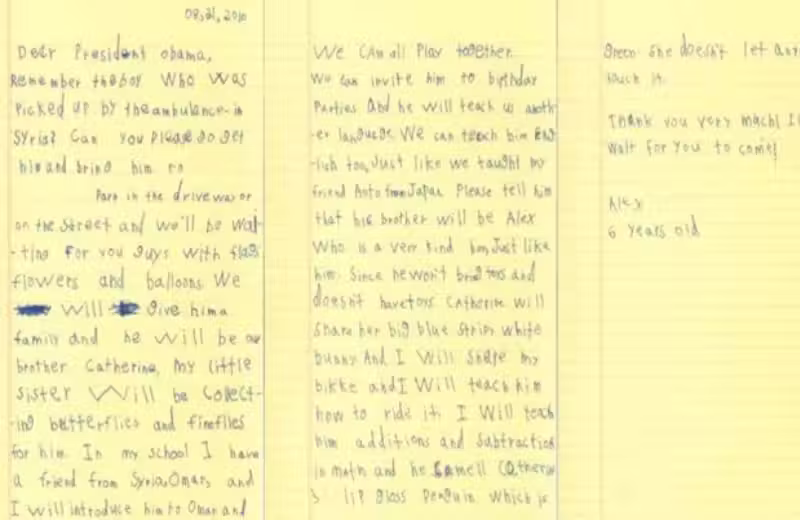 08,21,2016
Dear President obama,
Remember the boy Who was
Picked up by the ambulance in
Syria? Can you please go get
him and bring him to
Park in the driveway or
on the street and we'll be wai-
-ting for you guys with flags
flowers and balloons. We
will give him a
family and he will be our
brother Catherine, my little
sister Will be collect-
-ing butterflies and fireflies
for him. In my school I have
a friend from Syria, Omar, and
I Will introduce him to Omar and
We Can all Play together.
We can invite him to birthday
Parties And he will teach us anoth
-er language. We can teach him Eng
-lish too, Just like we taught my
friend Aoto from Japan. Please tell him
that his brother will be Alex
Who is a very kind boy, Just like
him. Since he won't bring toys and
doesn't have toys Catherine will
Share her big blue stripy white
bunny And I Will Share my
bikke and I Will teach him
how to ride it. I Will teach
him additions and subtractions
in math and he smell Catherine
's lip gloss Penguin which is
green. She doesn't let any
touch it.
Thank you very mach! I
wait for you to come!
Alex
6 years old